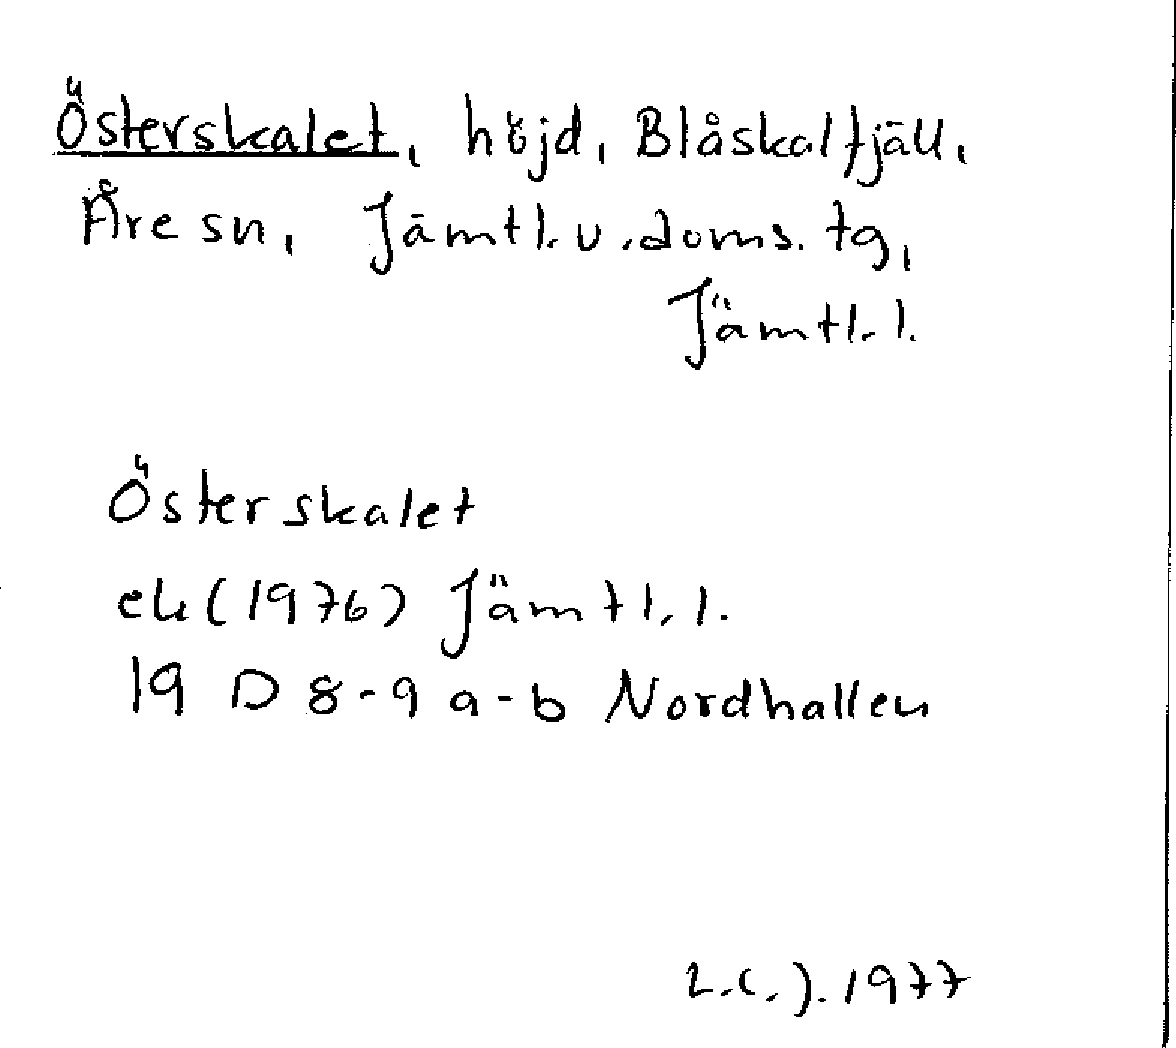 Österskalet, höjd, Blåskalfjäll,
Åre sn, Jämtl. v. doms. tg,
Jämtl. l.
Österskalet
ek (1976) Jämtl. l.
19 D 8-9 a-b Nordhallen
1977